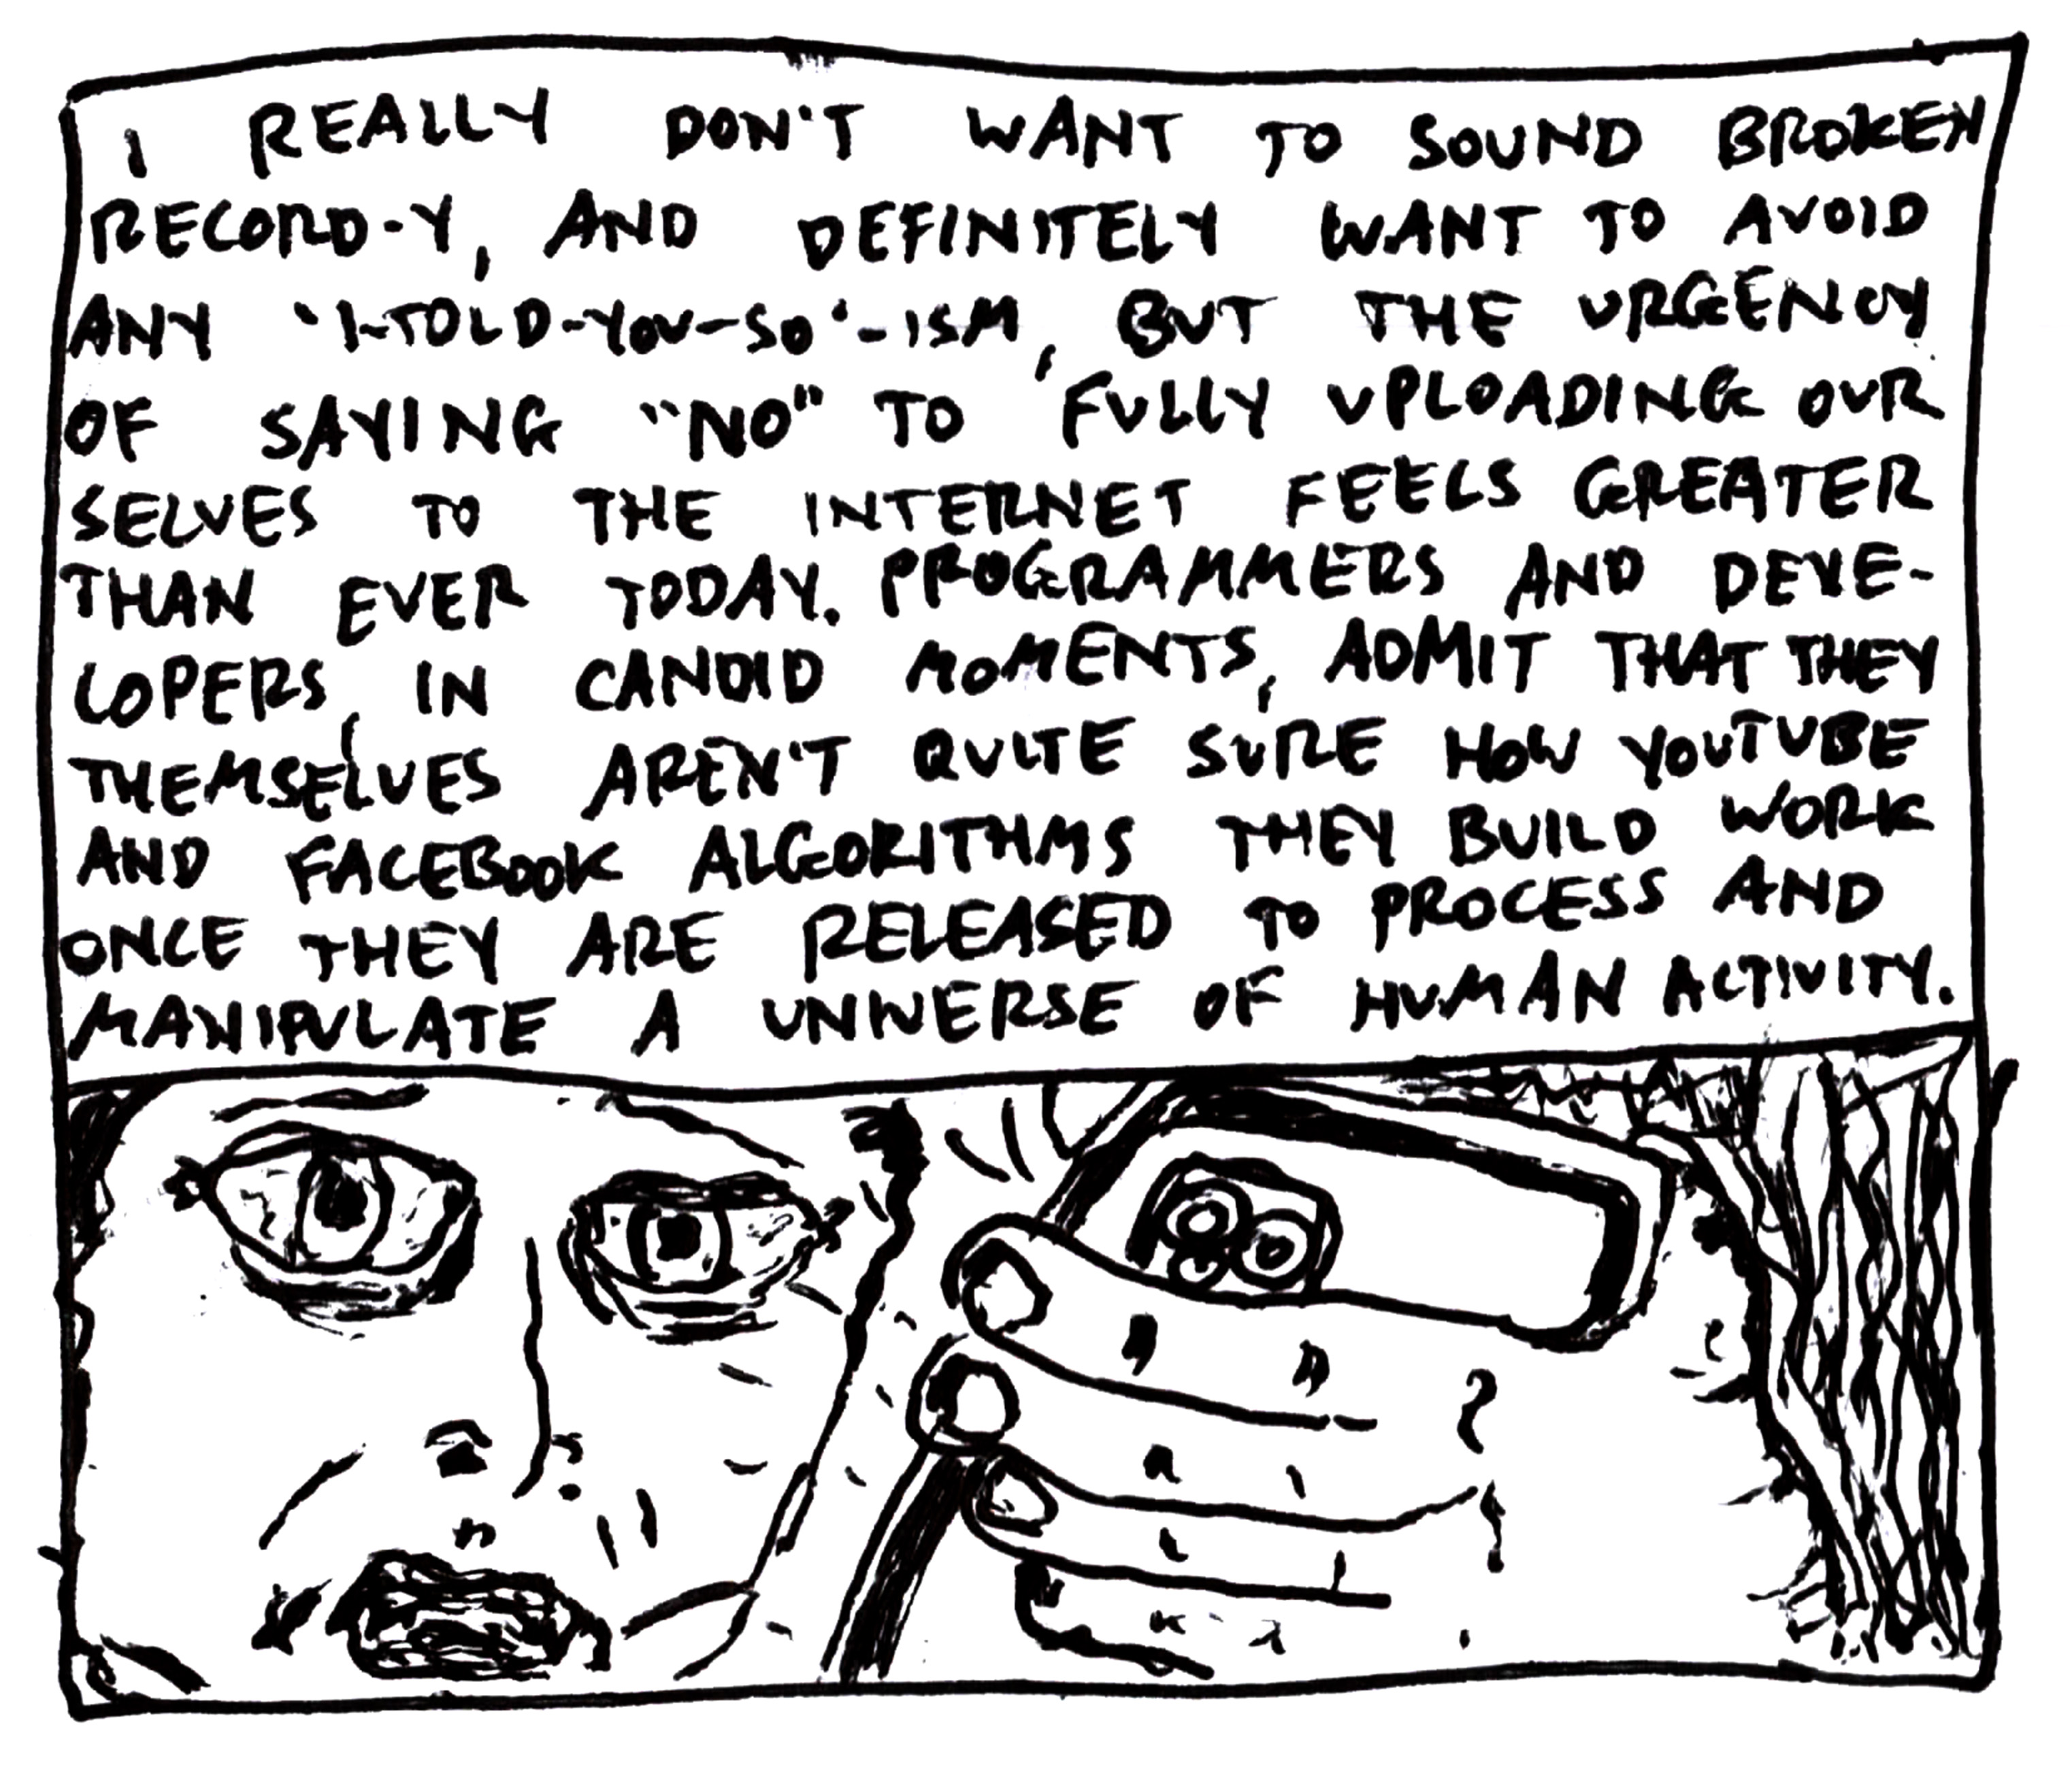 I REALLY DON'T WANT TO SOUND BROKEN
RECORD-Y, AND DEFINITELY WANT TO AVOID
ANY 'I-TOLD-YOU-SO'-ISM, BUT THE URGENCY
OF SAYING "NO" TO FULLY UPLOADING OUR
SELVES TO THE INTERNET FEELS GREATER
THAN EVER TODAY. PROGRAMMERS AND DEVE-
LOPERS, IN CANDID MOMENTS, ADMIT THAT THEY
THEMSELVES AREN'T QUITE SURE HOW YOUTUBE
AND FACEBOOK ALGORITHMS THEY BUILD WORK
ONCE THEY ARE RELEASED TO PROCESS AND
MANIPULATE A UNIVERSE OF HUMAN ACTIVITY.